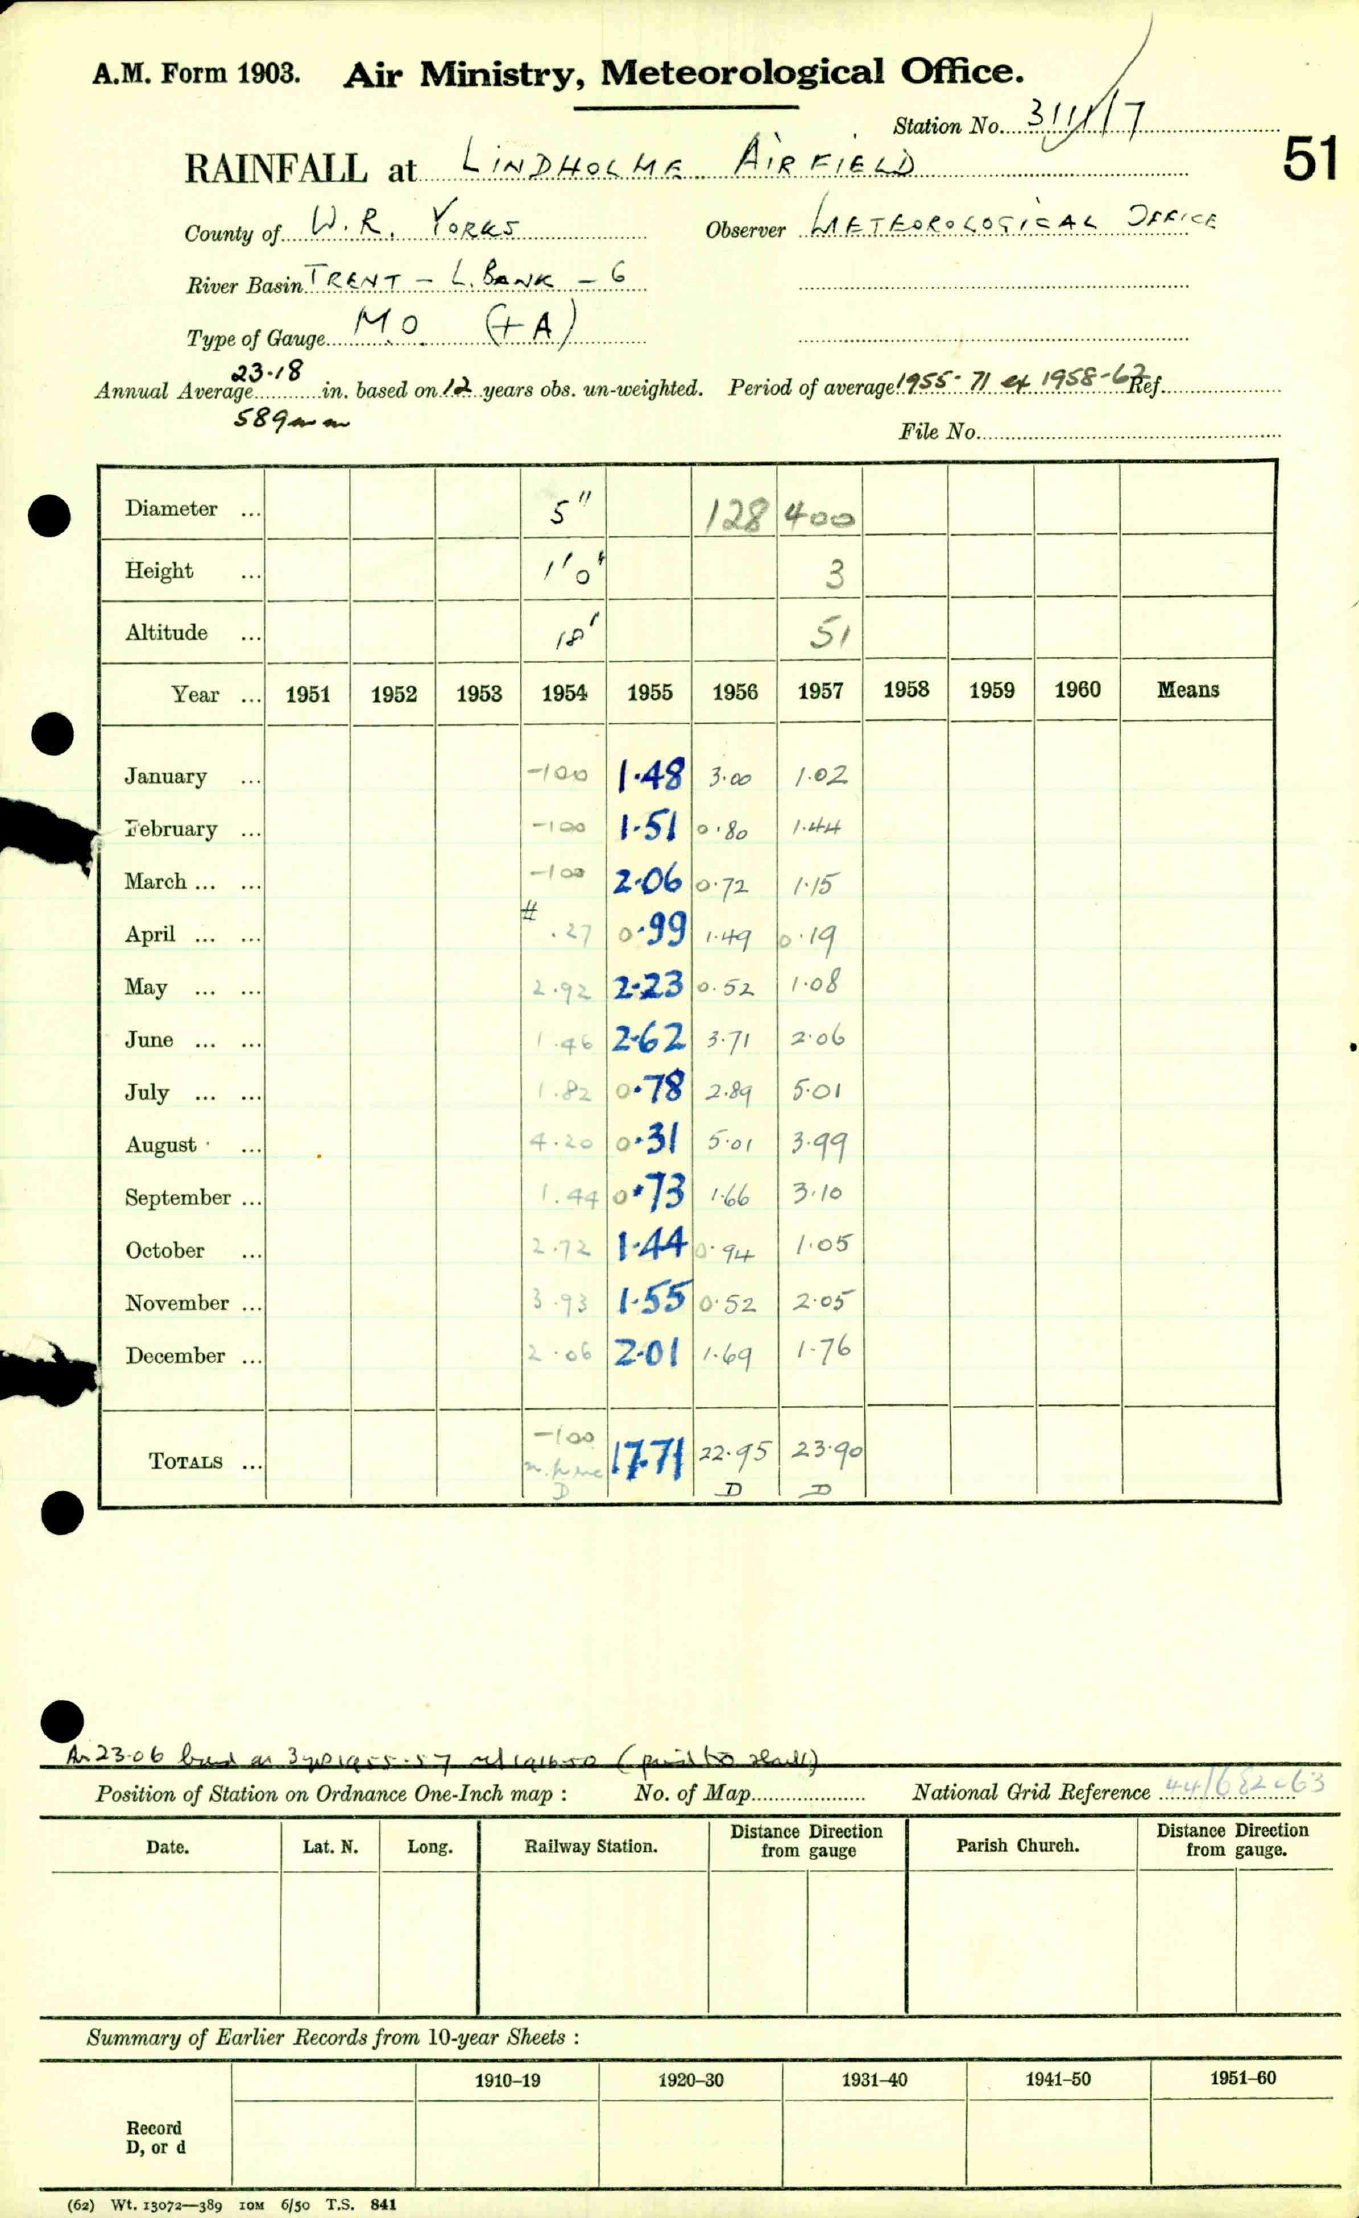 A.M. Form 1903. Air Ministry, Meteorological Office.
Station No. 3111/7
51
RAINFALL at LINDHOLME AIRFIELD
County of W.R. YORKS Observer METEOROLOGICAL OFFICE
River Basin TRENT - L. BANK - 6
Type of Gauge M.O. (+A)
Annual Average 23.18 in. based on 12 years obs. un-weighted. Period of average 1955-71 ex 1958-62 Ref.
589mm
File No.
Diameter ... 5" 128 400
Height ... 1'0" 3
Altitude ... 18' 51
Year ... 1951 1952 1953 1954 1955 1956 1957 1958 1959 1960 Means
January ... -100 1.48 3.00 1.02
February ... -100 1.51 0.80 1.44
March ... ... -100 2.06 0.72 1.15
April ... ... # .27 0.99 1.49 0.19
May ... ... 2.92 2.23 0.52 1.08
June ... ... 1.46 2.62 3.71 2.06
July ... ... 1.82 0.78 2.89 5.01
August ... 4.20 0.31 5.01 3.99
September ... 1.44 0.73 1.66 3.10
October ... 2.72 1.44 0.94 1.05
November ... 3.93 1.55 0.52 2.05
December ... 2.06 2.01 1.69 1.76
TOTALS ... -100 17.71 22.95 23.90
D D D
Av 23.06 based on 3 1955-57 1916-50
Position of Station on Ordnance One-Inch map : No. of Map National Grid Reference 44/682063
Date. Lat. N. Long. Railway Station. Distance from Direction gauge Parish Church. Distance from Direction gauge.
Summary of Earlier Records from 10-year Sheets :
1910–19 1920–30 1931–40 1941–50 1951–60
Record
D, or d
(62) Wt. 13072—389 10M 6/50 T.S. 841